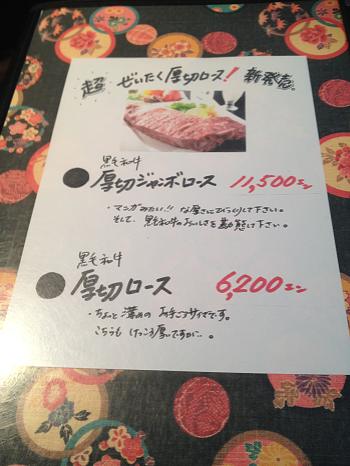 超 ぜいたく厚切ロース! 新発売。
黒毛和牛
● 厚切ジャンボロース 11,500エン
・マンガみたい!! な厚さにびっくりして下さい。
そして、黒毛和牛のおいしさを堪能して下さい。
黒毛和牛
● 厚切ロース 6,200エン
・ちょっと薄めの お手ごろサイズです。
こちらも けっこう厚いですが…。